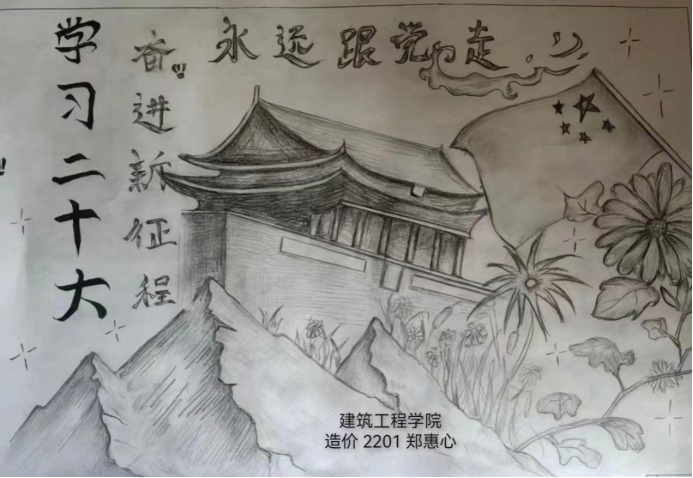 永远跟党走
学习二十大
奋进新征程
建筑工程学院
造价 2201 郑惠心